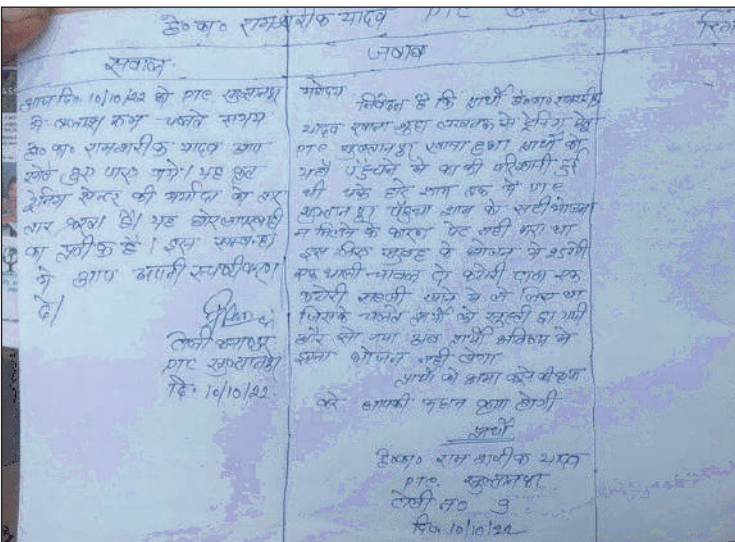 हे० का० रामशरीक यादव PTC
सवाल
आप दि० 10/10/22 को PTC सुल्तानपुर
में क्लास रूम चलते समय
हे० का० रामशरीक यादव आप
सोते हुए पाए गये। यह कृत
ट्रेनिंग सेन्टर की मर्यादा को तार
तार करता है। यह घोर लापरवाही
का प्रतीक है। इस सम्बन्ध
में आप अपनी स्पष्टीकरण
दे।
टोली कमाण्डर
PTC सुल्तानपुर
दि० 10/10/22
जबाब
महोदय
निवेदन है कि प्रार्थी हे० का० रामशरीक
यादव लखनऊ से ट्रेनिंग हेतु
PTC सुल्तानपुर रवाना हुआ प्रार्थी को
यहाँ पहुँचने में काफी परेशानी हुई
थी थके होरे शाम तक में PTC
सुल्तानपुर पहुँचा शाम को सही भोजन
न मिलने के कारण पेट नही भरा था
इस लिए सुबह के भोजन में 25 रोटी
एक थाली चावल दो कटोरी दाल एक
कटोरी सब्जी खाने में ले लिया था
जिसके चलते प्रार्थी को सुस्ती छा गयी
और सो गया अब प्रार्थी भविष्य में
इतना भोजन नही लेगा
प्रार्थी को क्षमा करने की कृपा
करे आपकी महान कृपा होगी
प्रार्थी
हे० का० रामशरीक यादव
PTC सुल्तानपुर
टोली न० 3
दि० 10/10/22